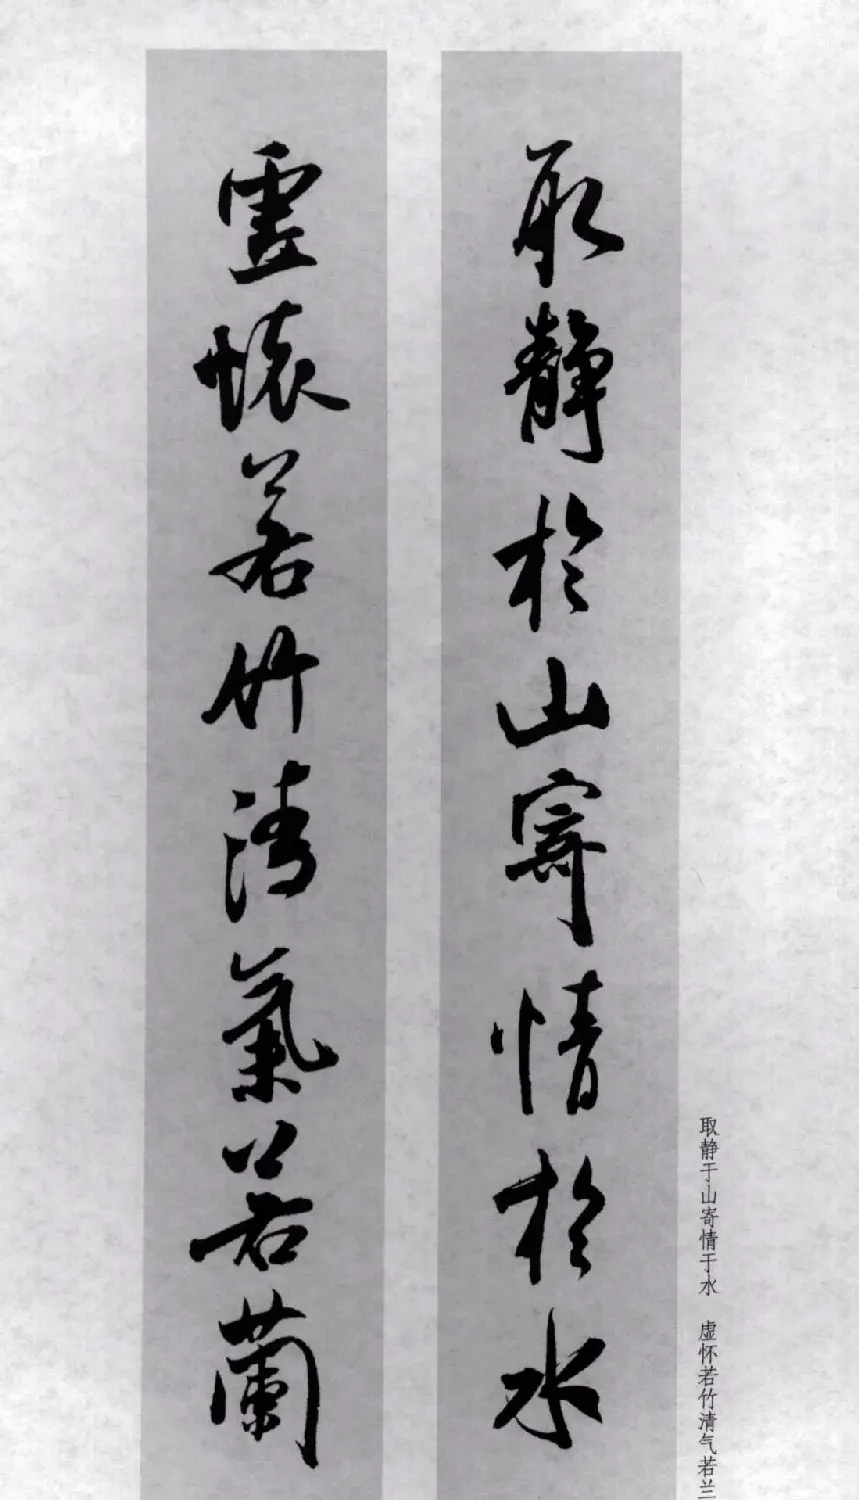 取靜於山寄情於水
虛懷若竹清氣若蘭
取静于山寄情于水 虚怀若竹清气若兰